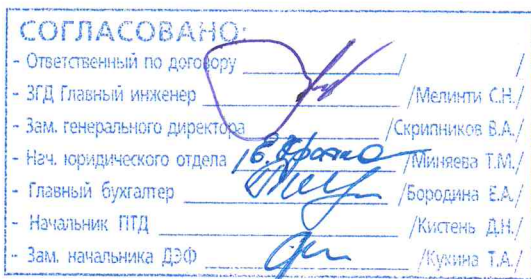 СОГЛАСОВАНО:
- Ответственный по договору / /
- ЗГД Главный инженер /Мелинти С.Н./
- Зам. генерального директора /Скрипников В.А./
- Нач. юридического отдела /Миняева Т.М./
- Главный бухгалтер /Бородина Е.А./
- Начальник ПТД /Кистень Д.Н./
- Зам. начальника ДЭФ /Кукина Т.А./